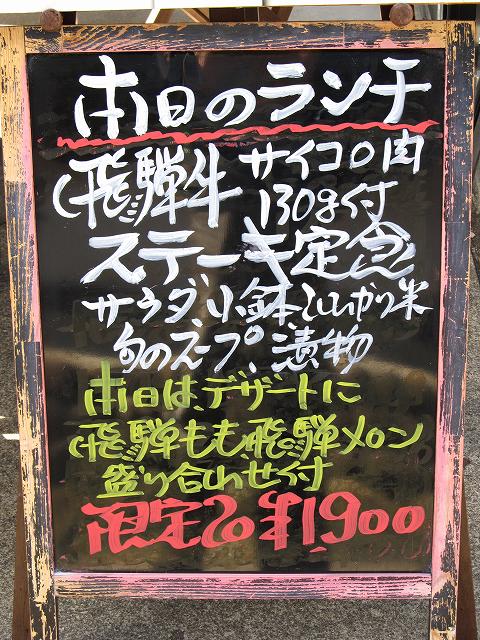 本日のランチ
飛騨牛 サイコロ肉
130g付
ステーキ定食
サラダ小鉢こしひかり米
旬のスープ、漬物
本日は、デザートに
飛騨もも飛騨メロン
盛り合わせ付
限定20 ¥1,900